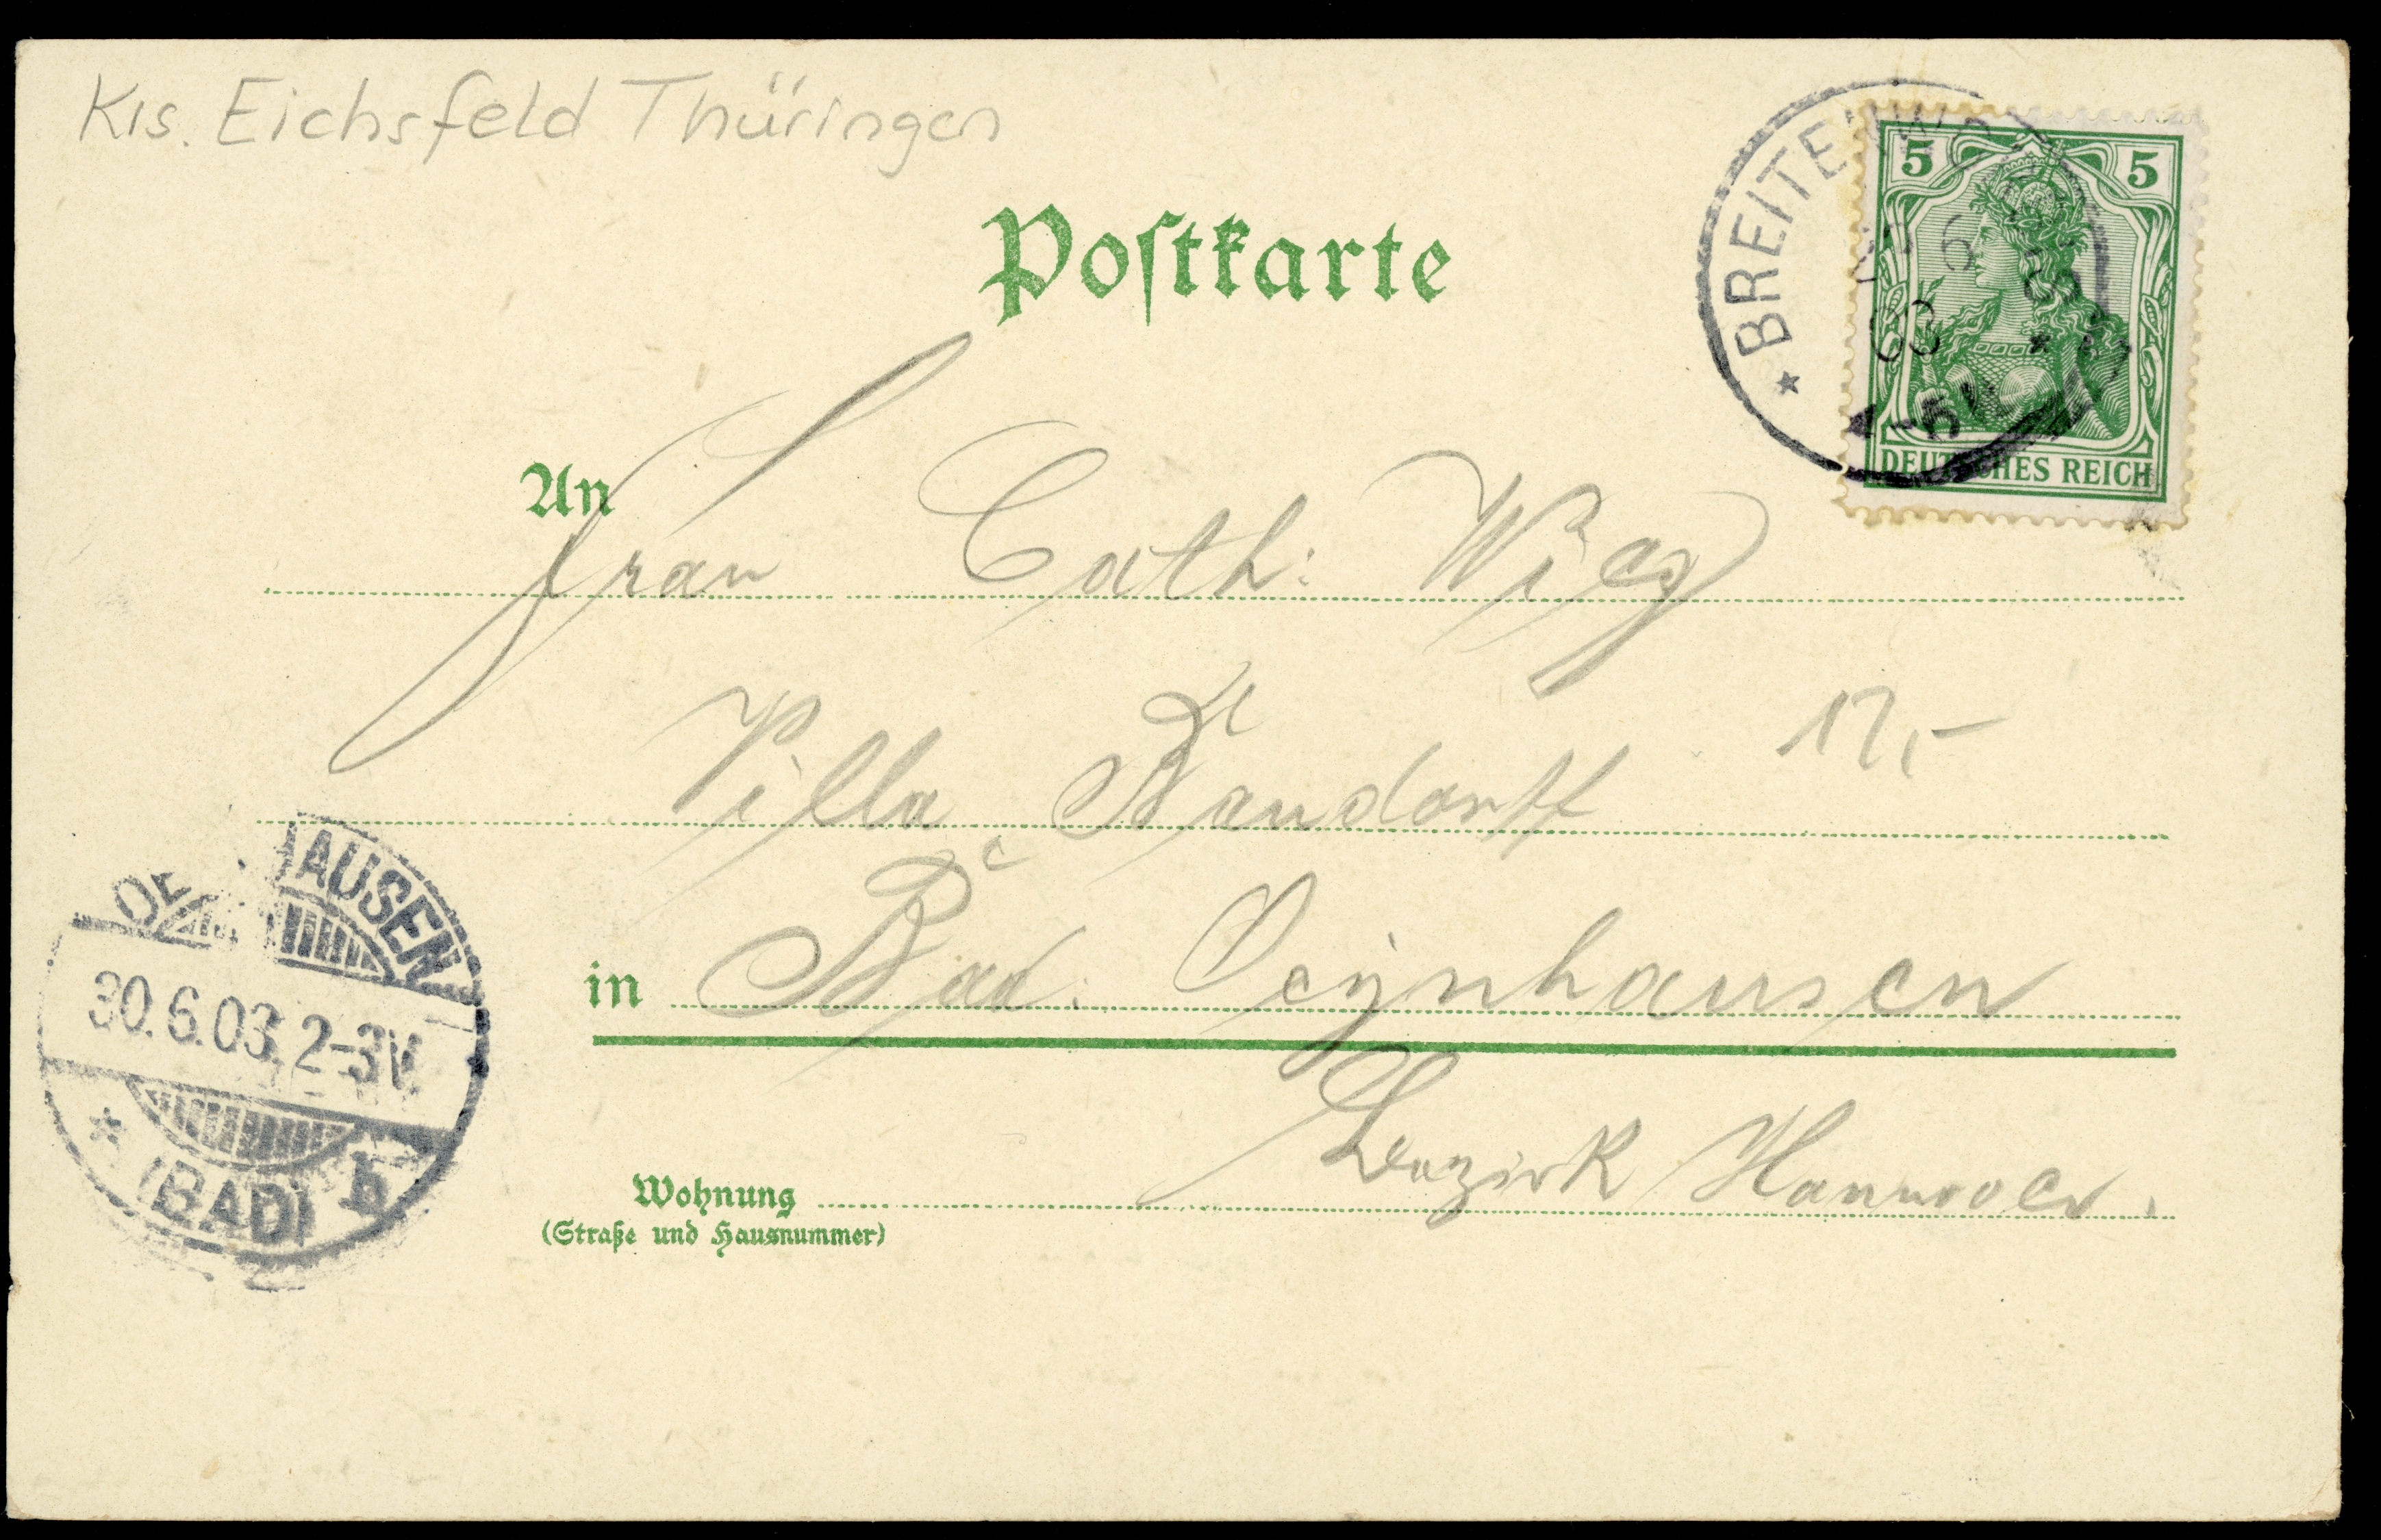 Krs. Eichsfeld Thüringen
Postkarte
5 5
DEUTSCHES REICH
BREITENW
6
03
An
Frau Cath: Wieg
Villa
17,-
in Bad. Oeynhausen
Bezirk Hannover.
Wohnung
(Straße und Hausnummer)
OE HAUSEN
30.6.03. 2-3V.
* (BAD) b